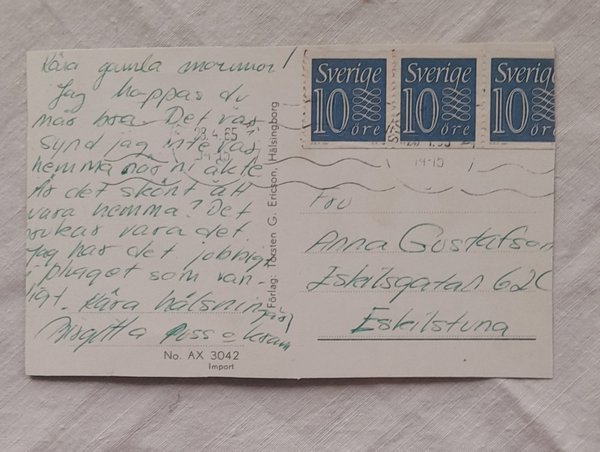 Kära gamla mormor!
Jag hoppas du
mår bra. Det var
synd jag inte var
hemma när ni åkte
Är det skönt att
vara hemma? Det
brukar vara det
Jag har det jobbigt
i plugget som van-
ligt. Kära hälsningar
Birgitta Puss o kram
No. AX 3042
Import
Förlag: Torsten G. Ericson, Hälsingborg
Sverige
10 öre
Sverige
10 öre
Sverige
10 öre
23.4.65
14-15
Fru
Anna Gustafson
Eskilsgatan 62C
Eskilstuna